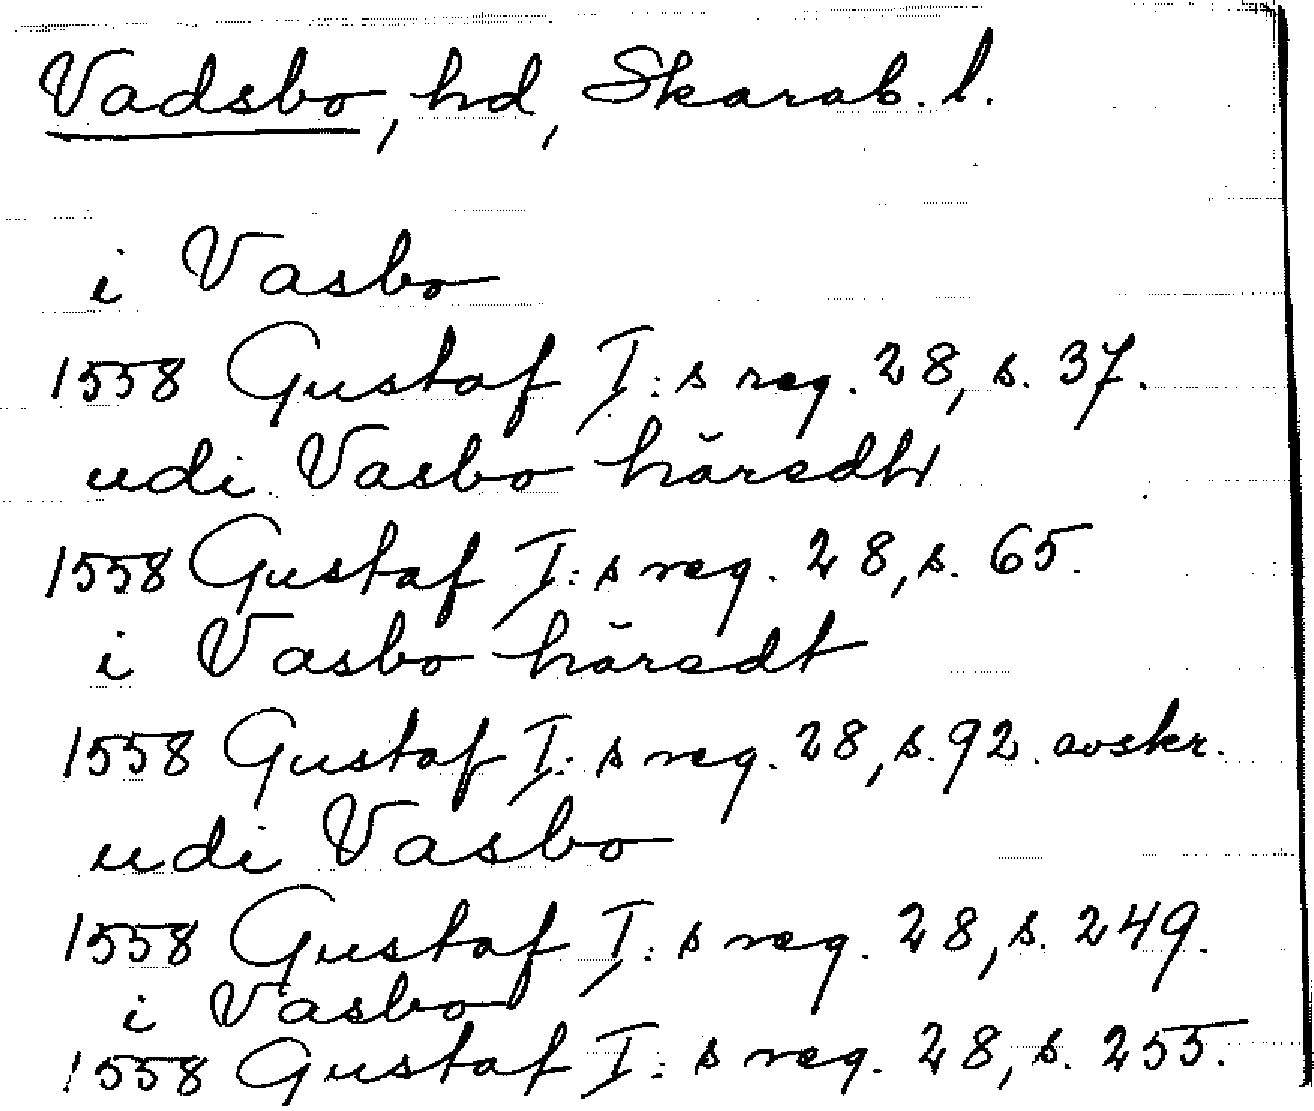 Vadsbo, hd, Skarab. l.
i Vasbo
1558 Gustaf I:s reg. 28, s. 37.
udi Vasbo häredht
1558 Gustaf I:s reg. 28, s. 65.
i Vasbo häredt
1558 Gustaf I:s reg. 28, s. 92. avskr.
udi Vasbo
1558 Gustaf I:s reg. 28, s. 249.
i Vasbo
1558 Gustaf I:s reg. 28, s. 255.